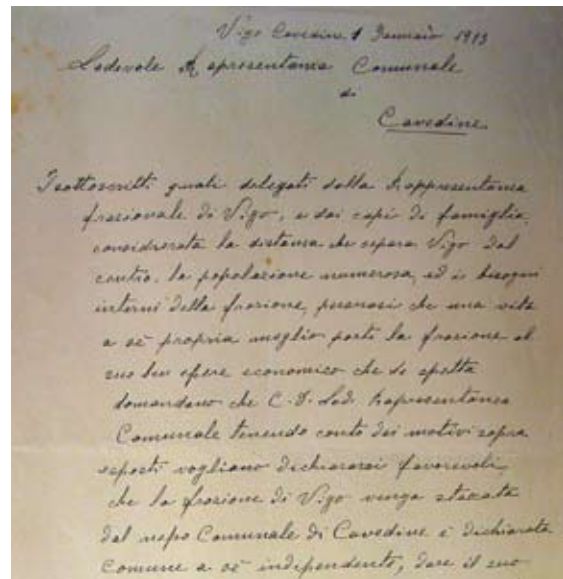 Vigo Cavedine 1 Gennaio 1913
Lodevole Rapresentanza Comunale
di
Cavedine
I sottoscritti quali delegati della Rappresentanza
frazionale di Vigo, e dai capi di famiglia,
considerata la distanza che separa Vigo dal
centro, la popolazione numerosa, ed i bisogni
interni della frazione, persuasi che una vita
a sè propria meglio porti la frazione al
suo ben essere economico che le spetta
domandano che C. S. Lod. Rapresentanza
Comunale tenendo conto dei motivi sopra
esposti vogliano dichiararsi favorevoli,
che la frazione di Vigo venga staccata
dal nesso Comunale di Cavedine e dichiarata
Comune a sè independente, dare il suo